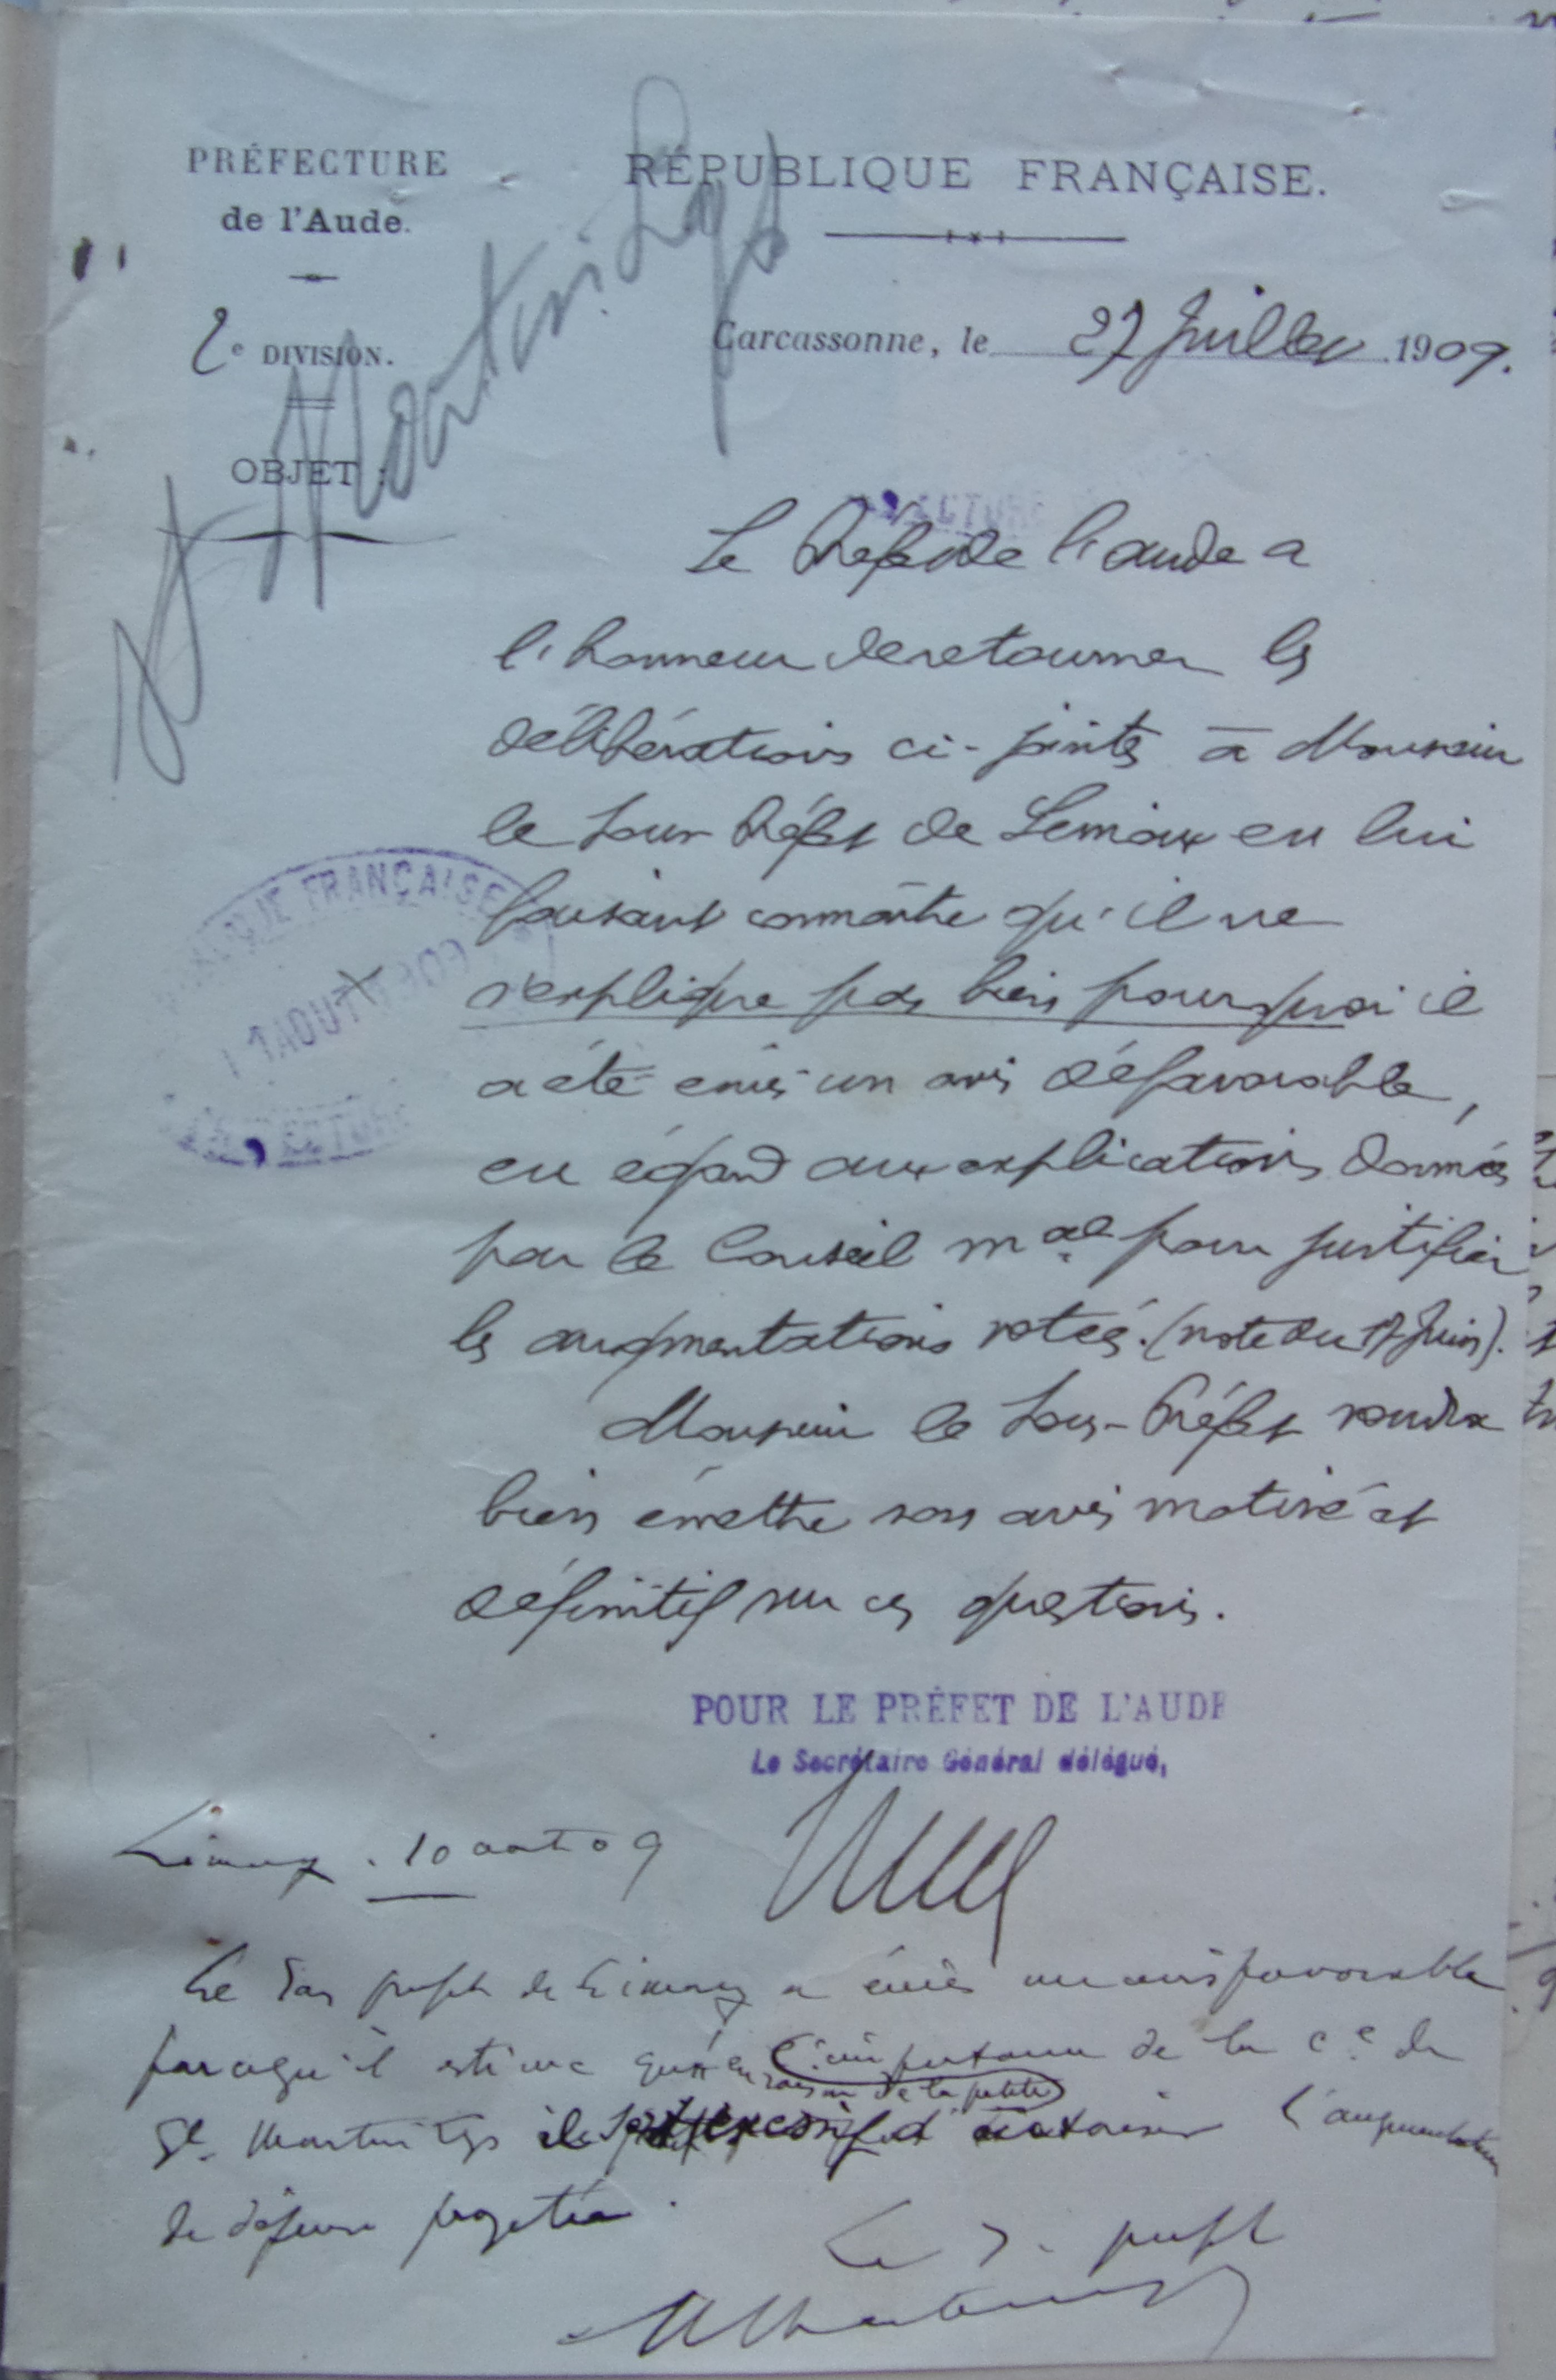 PRÉFECTURE
de l'Aude.
2e DIVISION.
OBJET :
St Martin Lys
RÉPUBLIQUE FRANÇAISE.
Carcassonne, le 27 Juillet 1909.
Le Préfet de l'Aude a
l'honneur de retourner les
délibérations ci-jointes à Monsieur
le Sous Préfet de Limoux en lui
faisant connaître qu'il ne
s'explique pas bien pourquoi il
a été émis un avis défavorable,
eu égard aux explications données
par le Conseil mal pour justifier
les augmentations votées. (note du 17 Juin).
Monsieur le Sous-Préfet voudra
bien émettre son avis motivé et
définitif sur ces questions.
RÉPUBLIQUE FRANÇAISE
11 AOUT 1909
POUR LE PRÉFET DE L'AUDE
Le Secrétaire Général délégué,
Limoux. 10 août 09
Le Sous préfet de Limoux a émis un avis favorable
parcequ'il estime qu'en l'importance de la Ce de
raison de la petite
St Martin Lys il serait excessif d'autoriser l'augmentation
de dépense projetée.
Le S. préfet